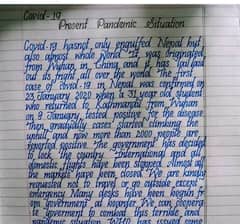 Covid-19
Present Pandemic Situation
Covid-19 hasnot only engulfed Nepal but
also almost whole World. It was originated
from Wuhan, in China and it has spread
out its fright all over the world. The first
case of covid-19 in Nepal was confirmed on
23 January 2020 when a 31 year old student
who returned to Kathmandu from Wuhan
on 9 January, tested positive for the disease
Then gradually cases started climbing the
uphill and now more than 2000 people are
reported positive. The government has decided
to lock the country. International and all
domestic flights have been stopped. Almost all
the markets have been closed. We are kindly
requested not to travel or go outside except
emergency. Many desks have been
government of
government to combat this terrible and
pandemic situation. has caused